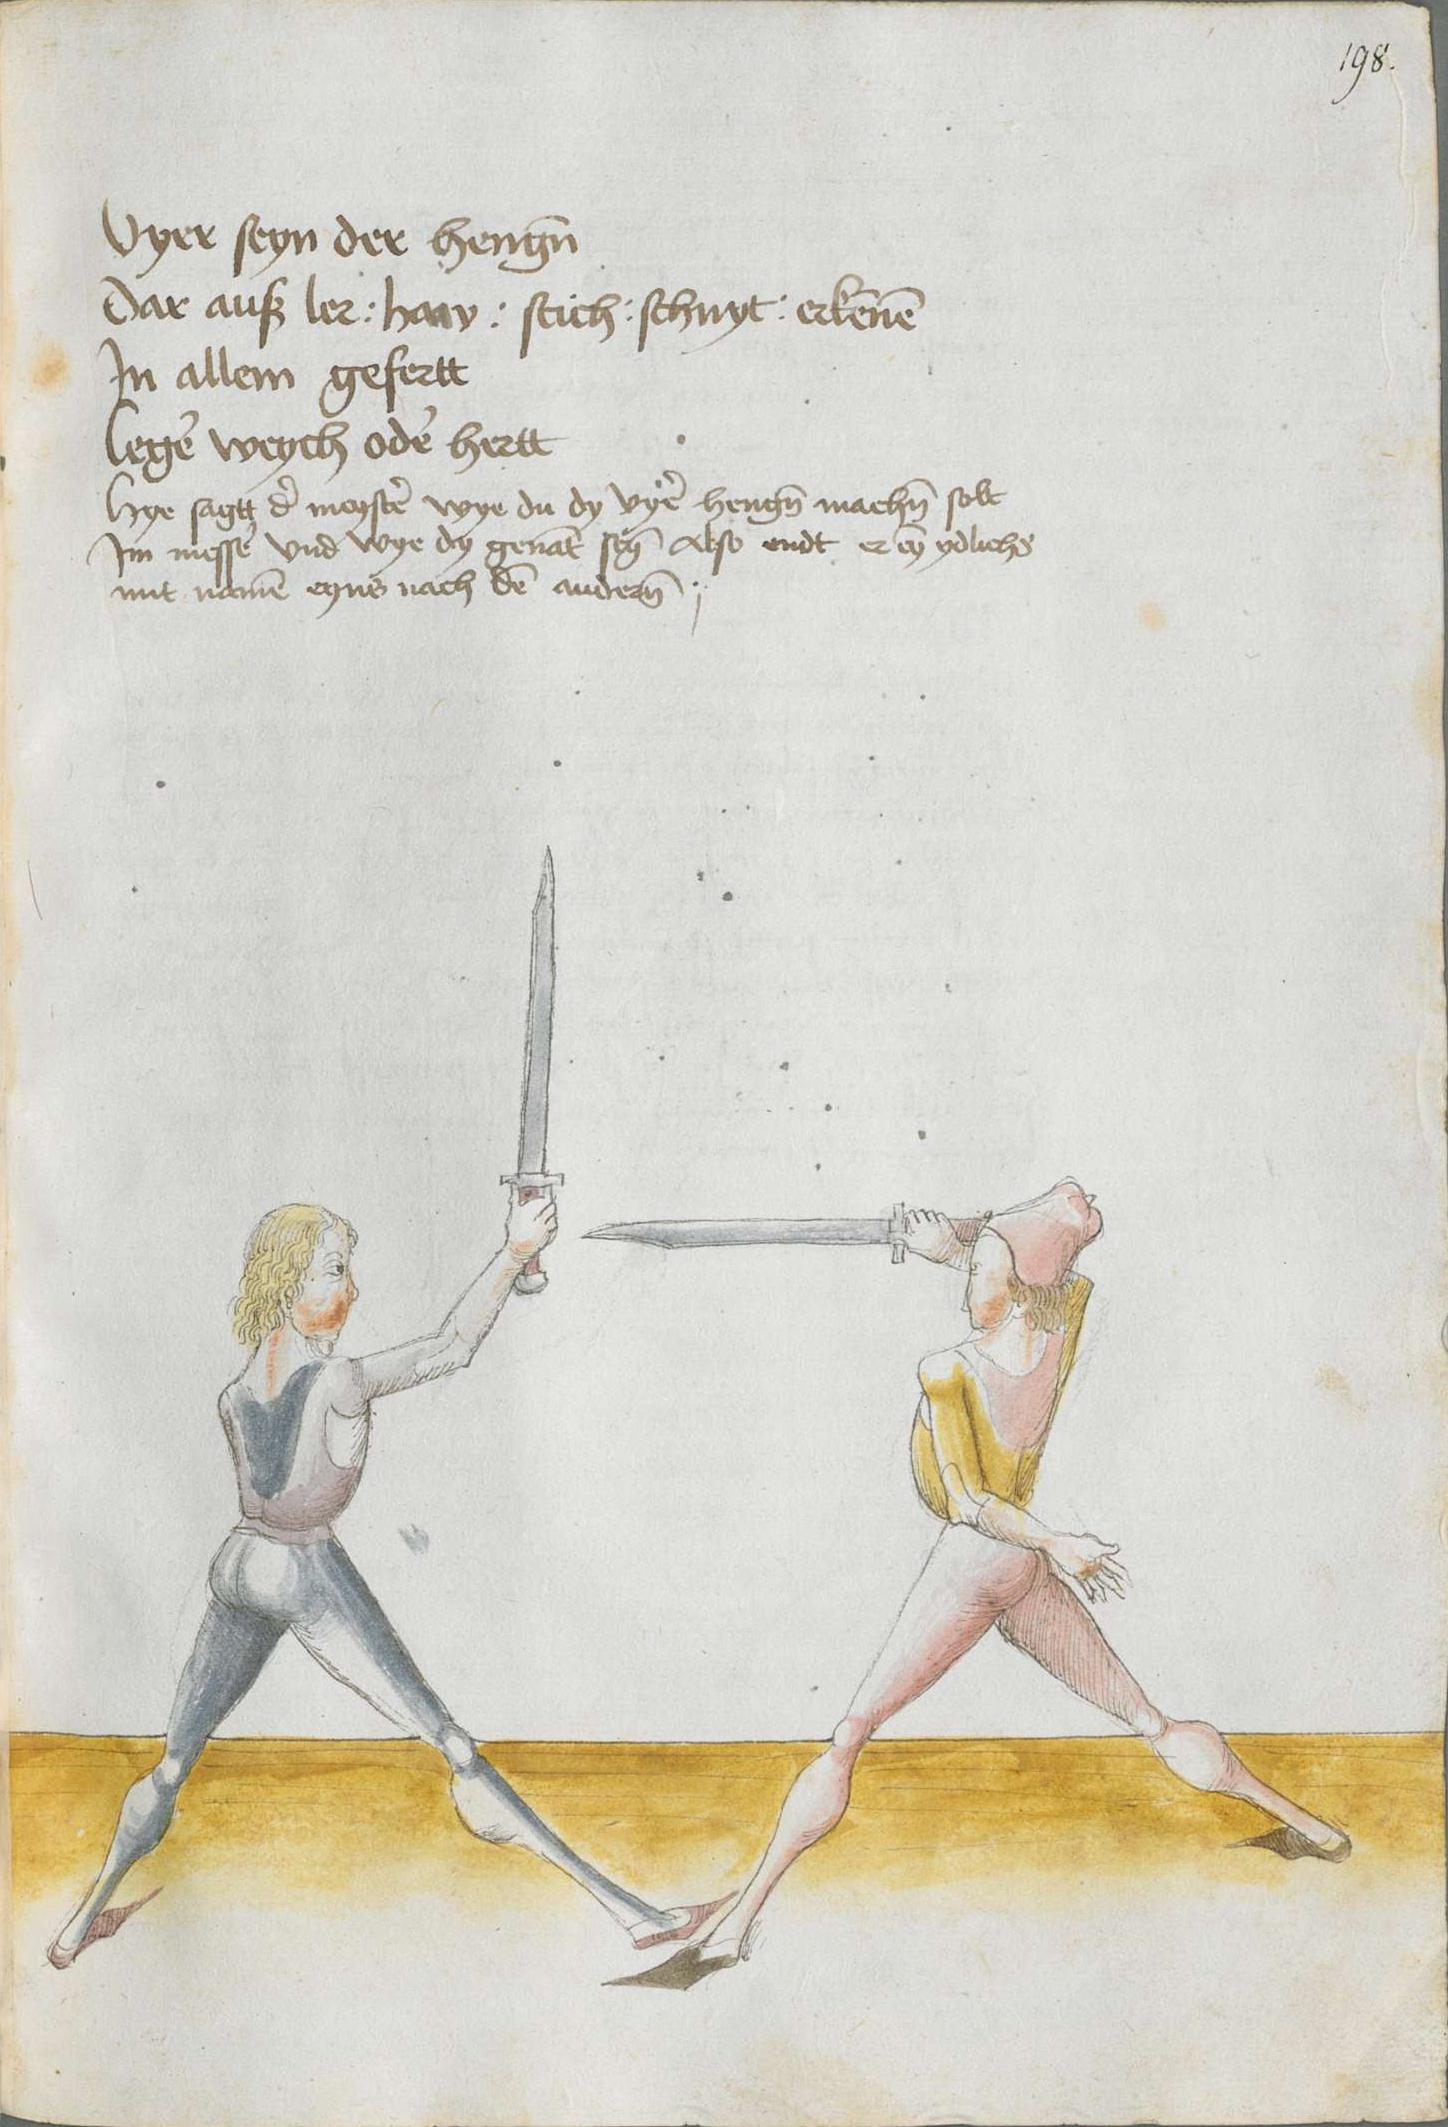 198.
Vyer seyn der hengn̄
Dar auß ler : haw : stich : schnyt : erkēnē
In allem gefertt
Legē weych odē hertt
Hye sagtt d̄ meystē wye du dy vyē hengn̄ machn̄ solt
Im messē vnd wye dy genāt seȳ Also endt er eȳ ydlichs
mit namē eyns nach dē andern̄